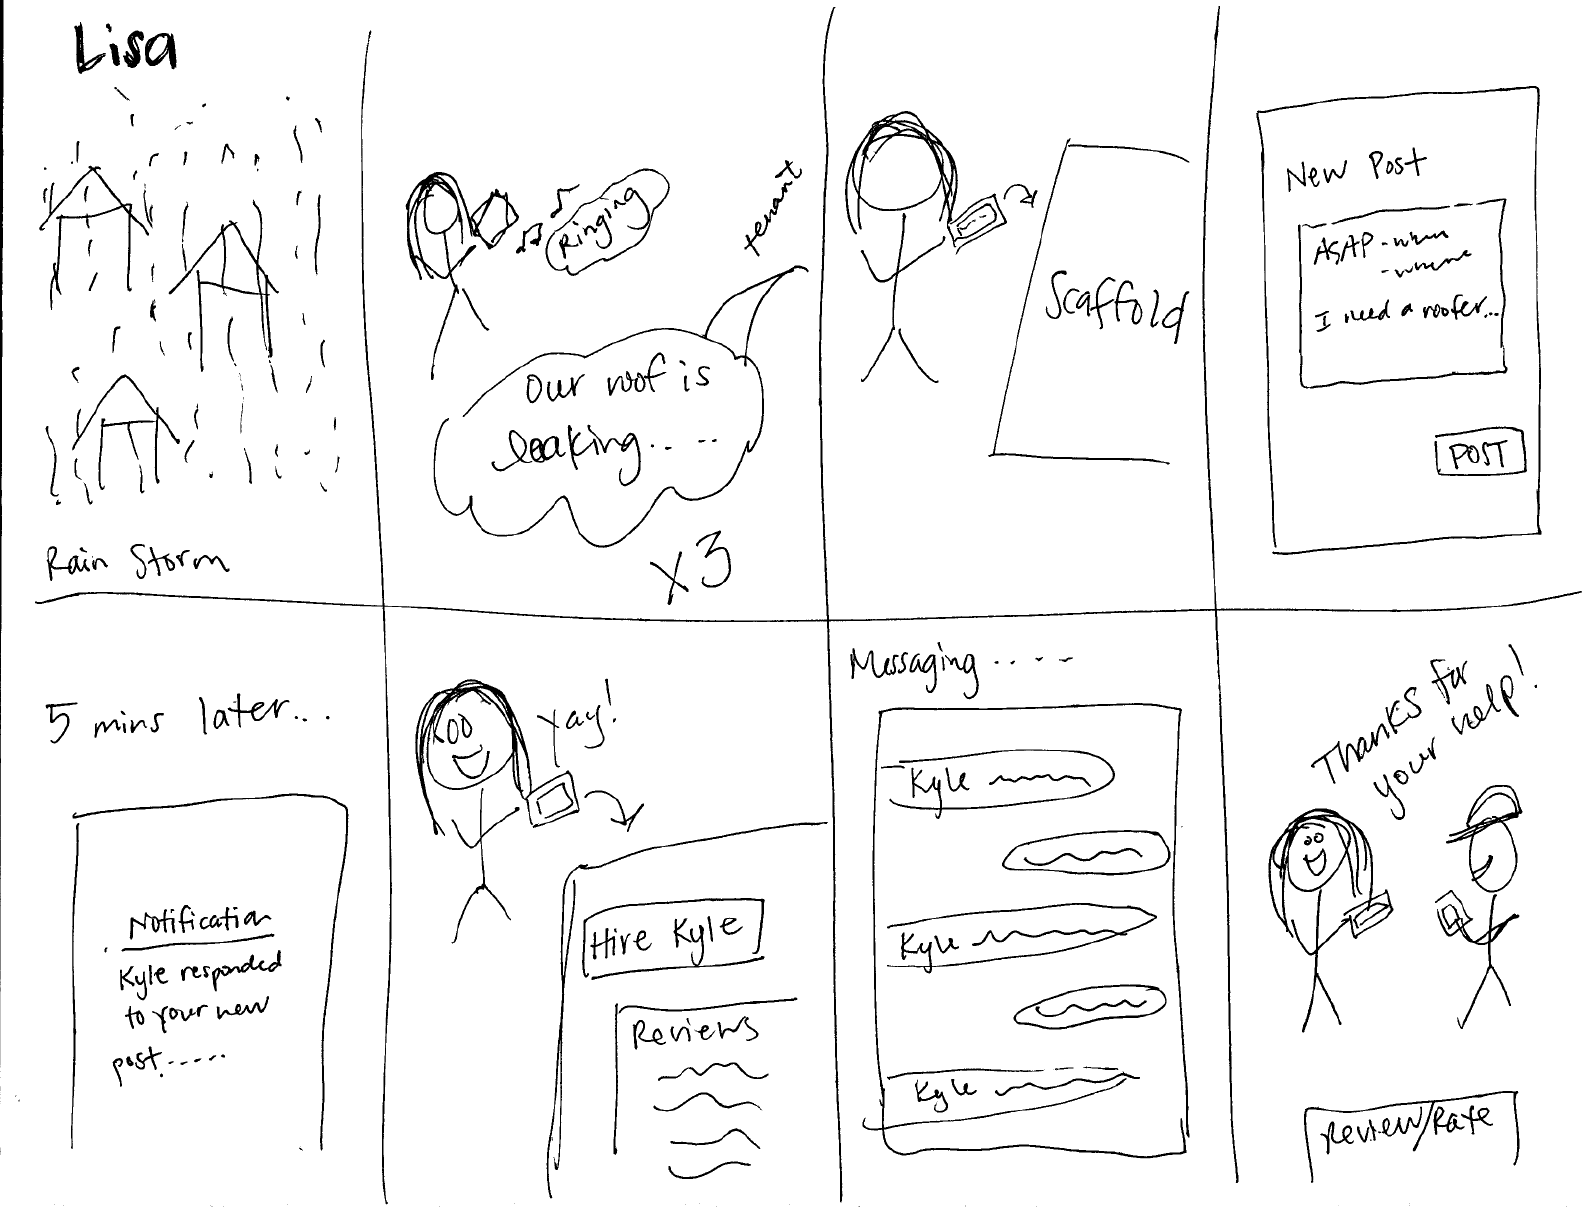 Lisa
Rain Storm
Ringing
tenant
Our roof is
leaking.. ..
x3
Scaffold
New Post
ASAP - when
- where
I need a roofer...
POST
5 mins later...
Notification
Kyle responded
to your new
post......
Yay!
Hire Kyle
Reviews
Messaging ....
Kyle
Kyle
Kyle
Thanks for
your help!
Review/Rate